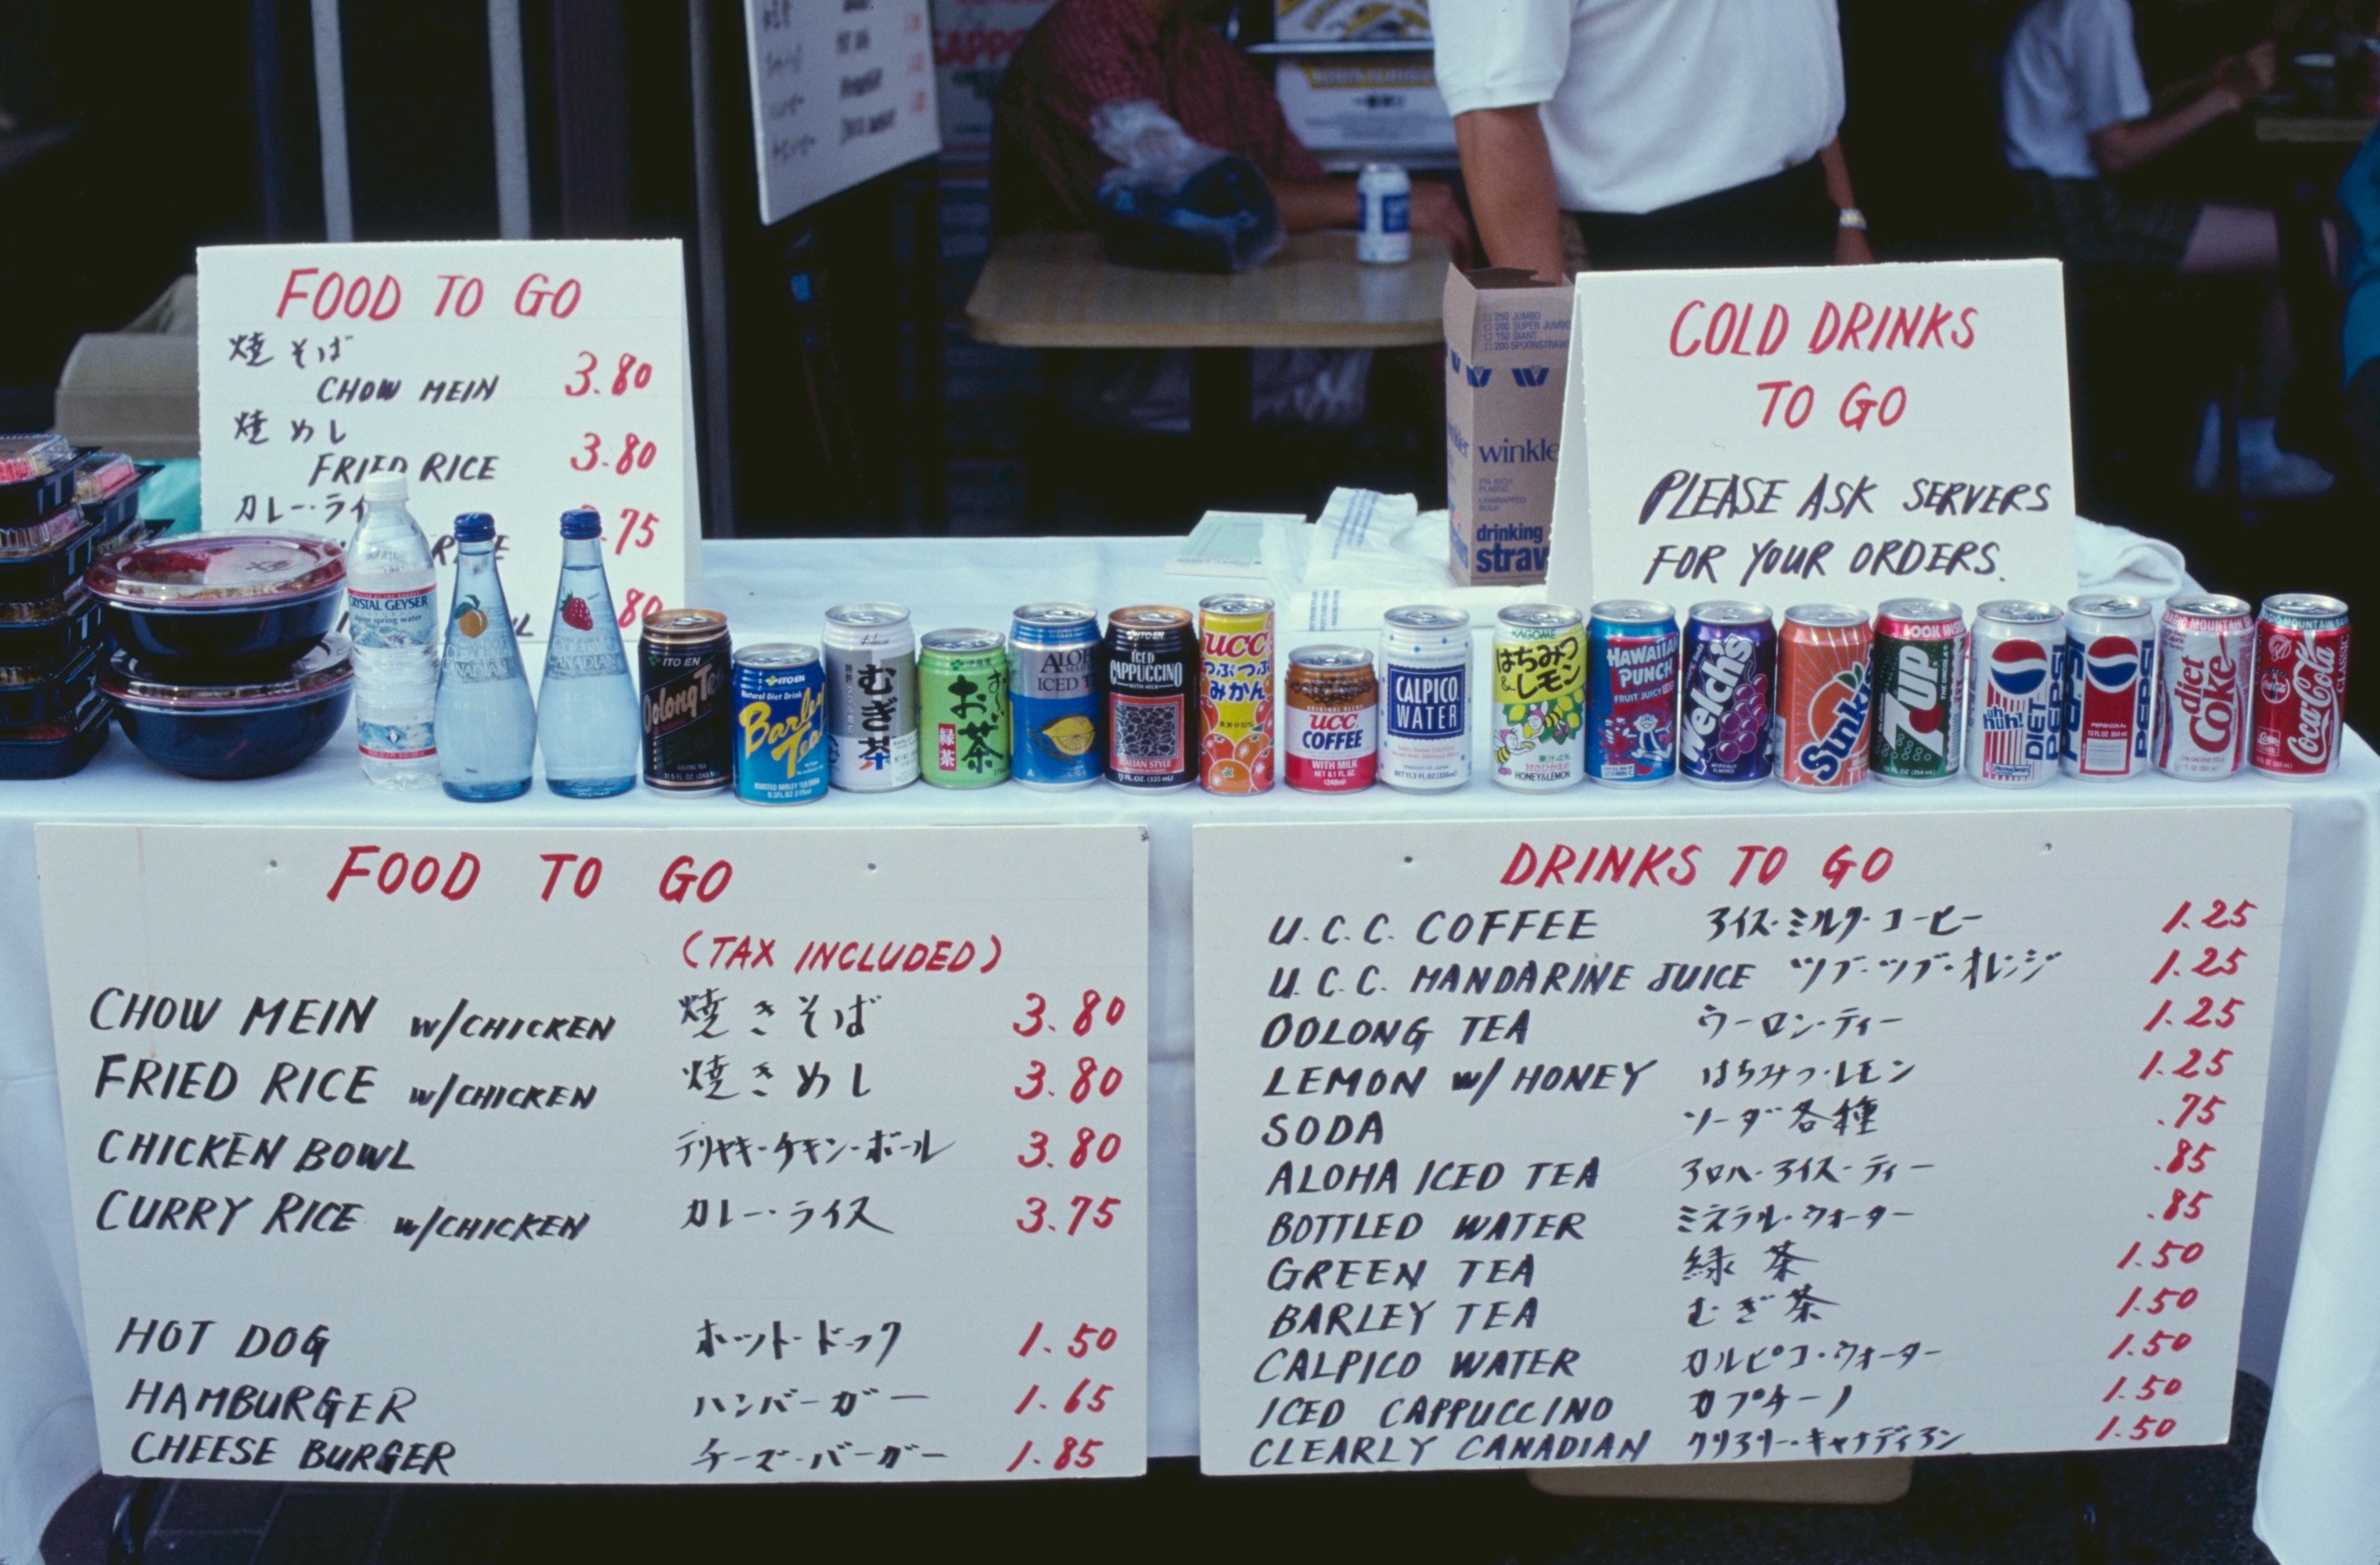 SAPPO
FOOD TO GO
焼そば
CHOW MEIN 3.80
焼めし
FRIED RICE 3.80
カレー・ライ
75
80
250 JUMBO
200 SUPER JUMBO
150 GIANT
200 SPOONSTRAW
winkle
drinking
straw
COLD DRINKS
TO GO
PLEASE ASK SERVERS
FOR YOUR ORDERS.
CRYSTAL GEYSER
alpine spring water
CLEARLY CANADIAN
CLEARLY CANADIAN
ITO EN
Oolong Tea
OOLONG TEA
ITOEN
Natural Diet Drink
Barley
Tea
ROASTED BARLEY TEA DRINK
むぎ茶
お〜い
お茶
緑茶
ALOHA
ICED T
ITOEN
ICED
CAPPUCCINO
WITH MILK
ITALIAN STYLE
UCC
つぶつぶ
みかん
ORIGINAL BLEND
UCC
COFFEE
WITH MILK
NET 8.1 FL OZ
(240ml)
CALPICO
WATER
KAGOME
はちみつ
&レモン
果汁4%
HONEY&LEMON
HAWAIIAN
PUNCH
FRUIT JUICY RED
Welch's
Sunki
LOOK INS
7UP
uh huh!
DIET PEPSI
PEPSI
PEPSI-COLA
PEPSI
diet
Coke
Coca-Cola
CLASSIC
FOOD TO GO
(TAX INCLUDED)
CHOW MEIN w/CHICKEN 焼きそば 3.80
FRIED RICE w/CHICKEN 焼きめし 3.80
CHICKEN BOWL テリヤキ・チキン・ボール 3.80
CURRY RICE w/CHICKEN カレー・ライス 3.75
HOT DOG ホット・ドック 1.50
HAMBURGER ハンバーガー 1.65
CHEESE BURGER チーズ・バーガー 1.85
DRINKS TO GO
U.C.C. COFFEE アイス・ミルク・コーヒー 1.25
U.C.C. MANDARINE JUICE ツブ・ツブ・オレンジ 1.25
OOLONG TEA ウーロン・ティー 1.25
LEMON w/ HONEY はちみつ・レモン 1.25
SODA ソーダ各種 .75
ALOHA ICED TEA アロハ・アイス・ティー .85
BOTTLED WATER ミネラル・ウォーター .85
GREEN TEA 緑茶 1.50
BARLEY TEA むぎ茶 1.50
CALPICO WATER カルピコ・ウォーター 1.50
ICED CAPPUCCINO カプチーノ 1.50
CLEARLY CANADIAN クリアリー・キャナディアン 1.50